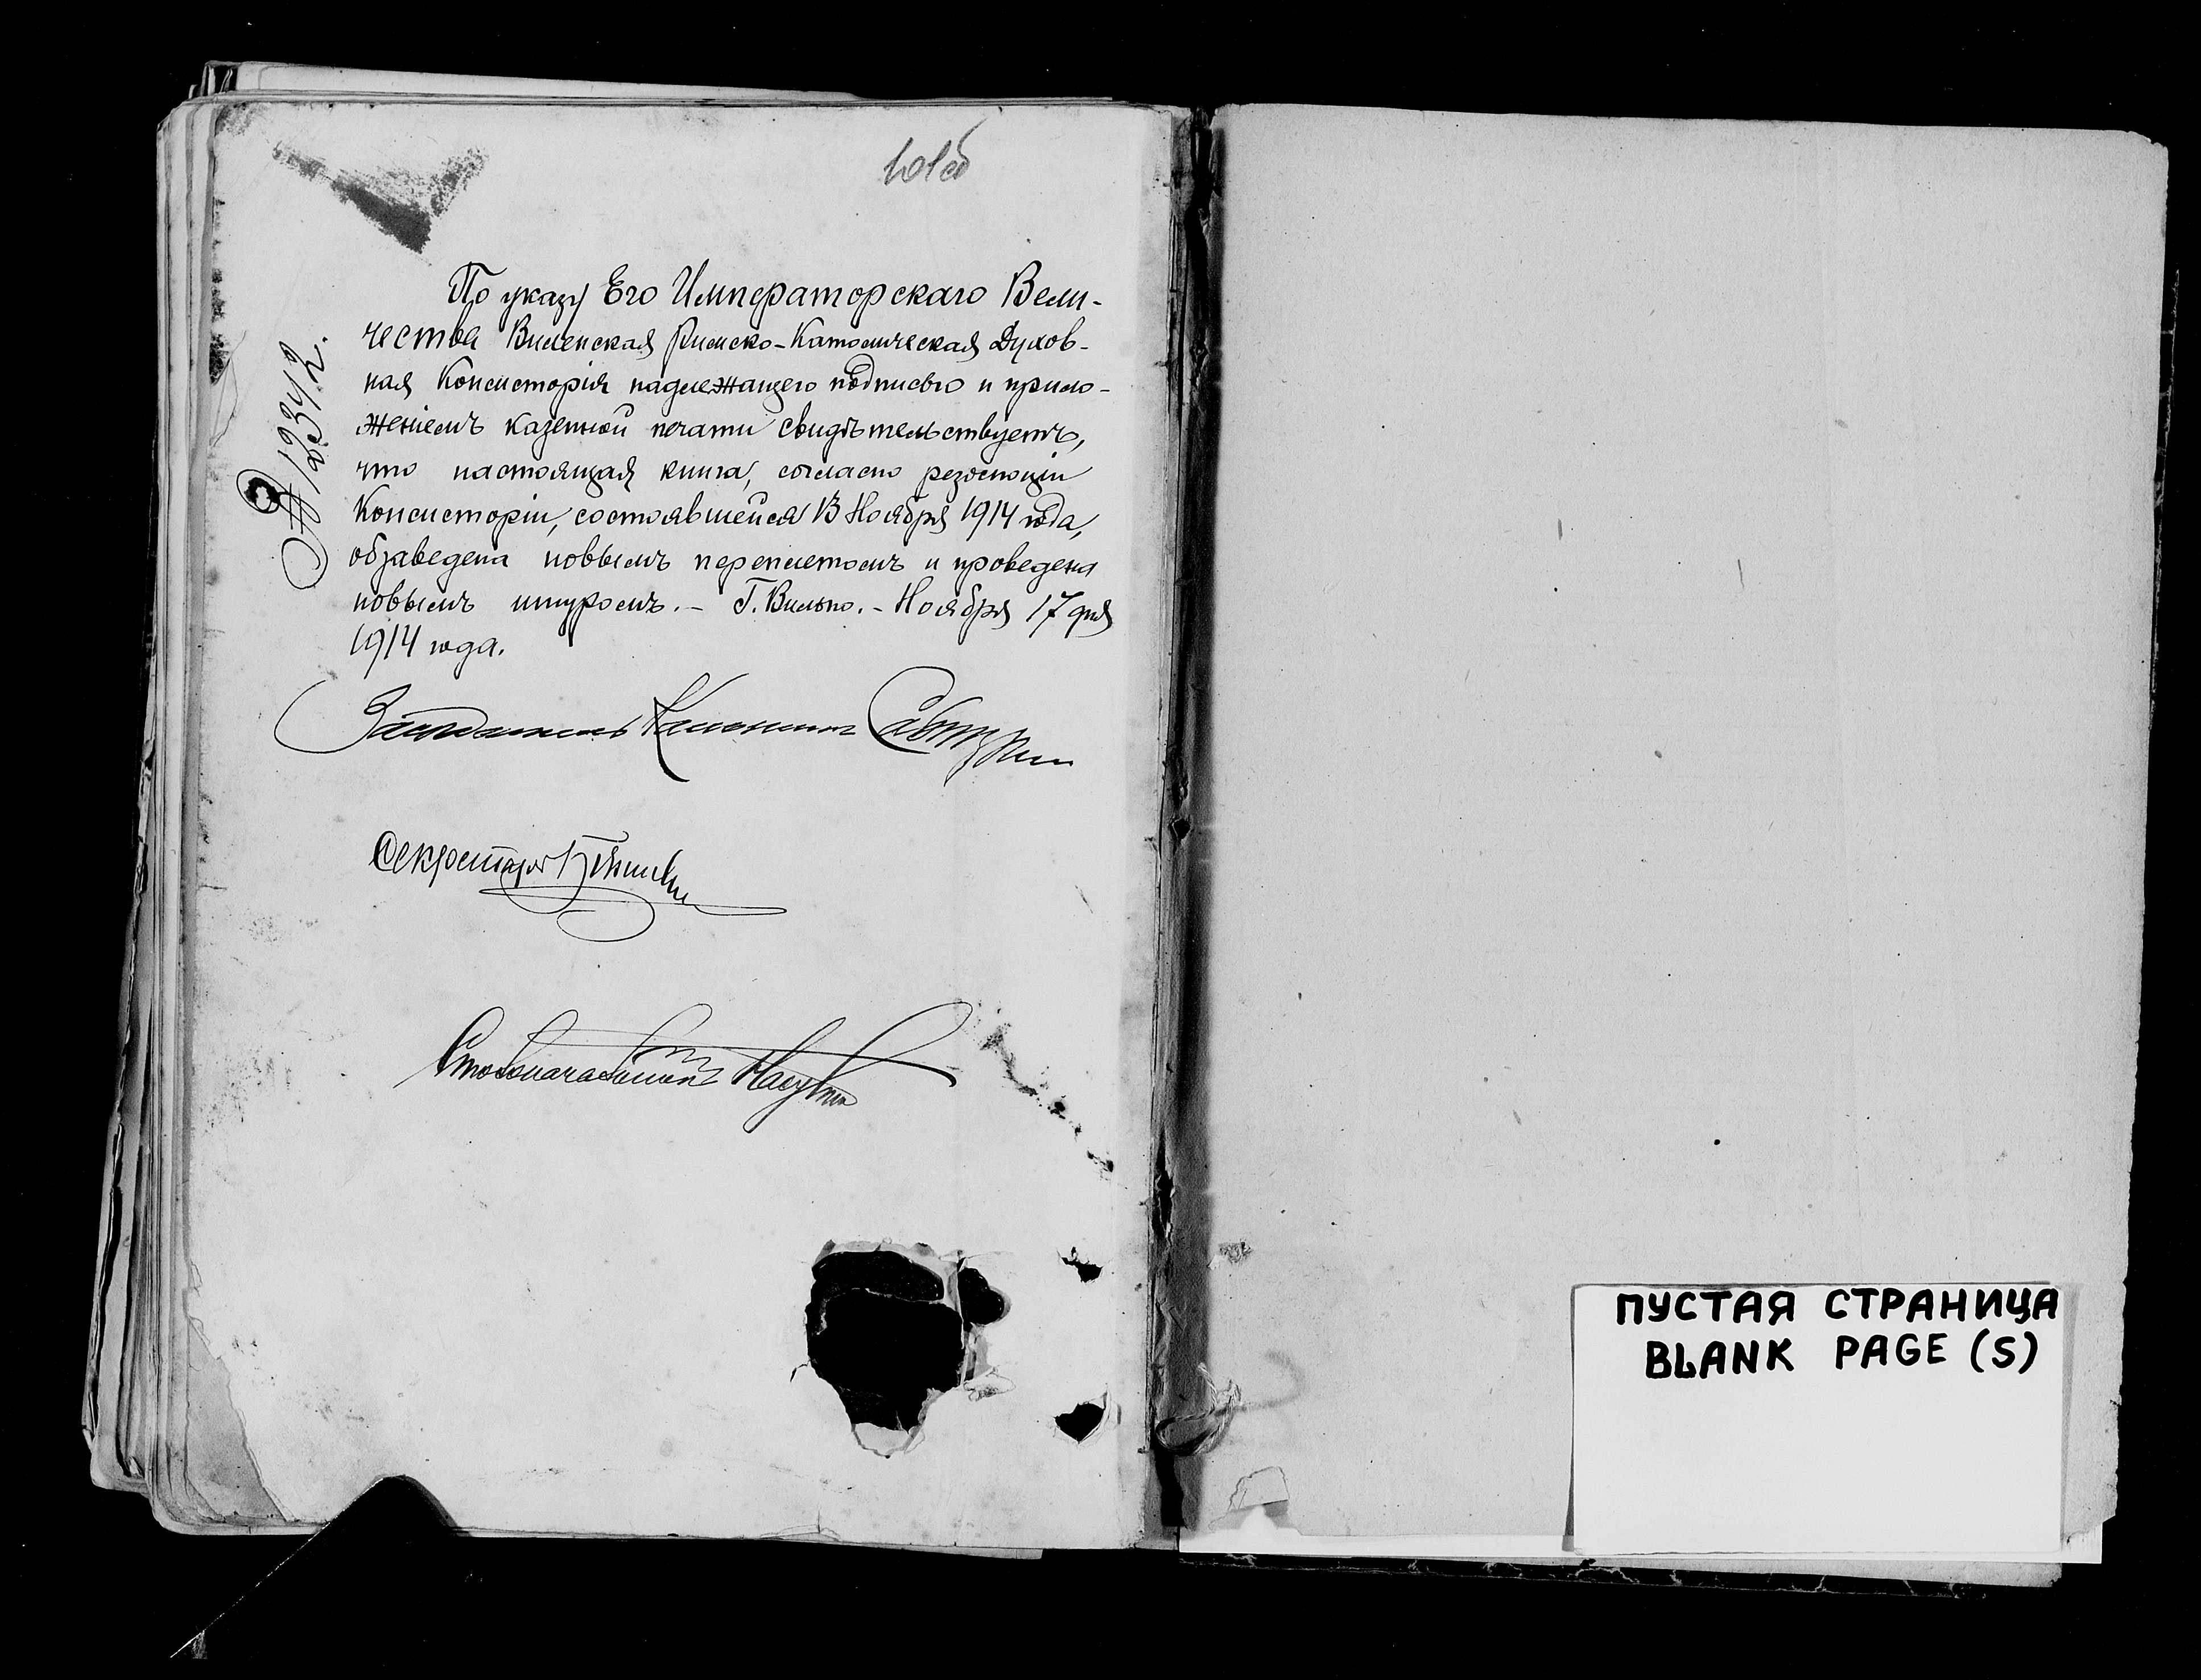 По указу Его Императорскаго Вели-
чества Виленская Римско-Католическая Духов-
ная Консисторія надлежащею подписью и прило-
женіемъ казенной печати свидѣтельствуетъ,
что настоящая книга, согласно резолюціи
Консисторіи, состоявшейся 13 Ноября 1914 года,
обзаведена новымъ переплетомъ и проведена
новымъ шнуромъ.- Г. Вильно.- Ноября 17 дня
1914 года.
№ 12342.
Засѣдатель Каноникъ
Секретарь
Столоначальникъ
ПУСТАЯ СТРАНИЦА
BLANK PAGE (S)